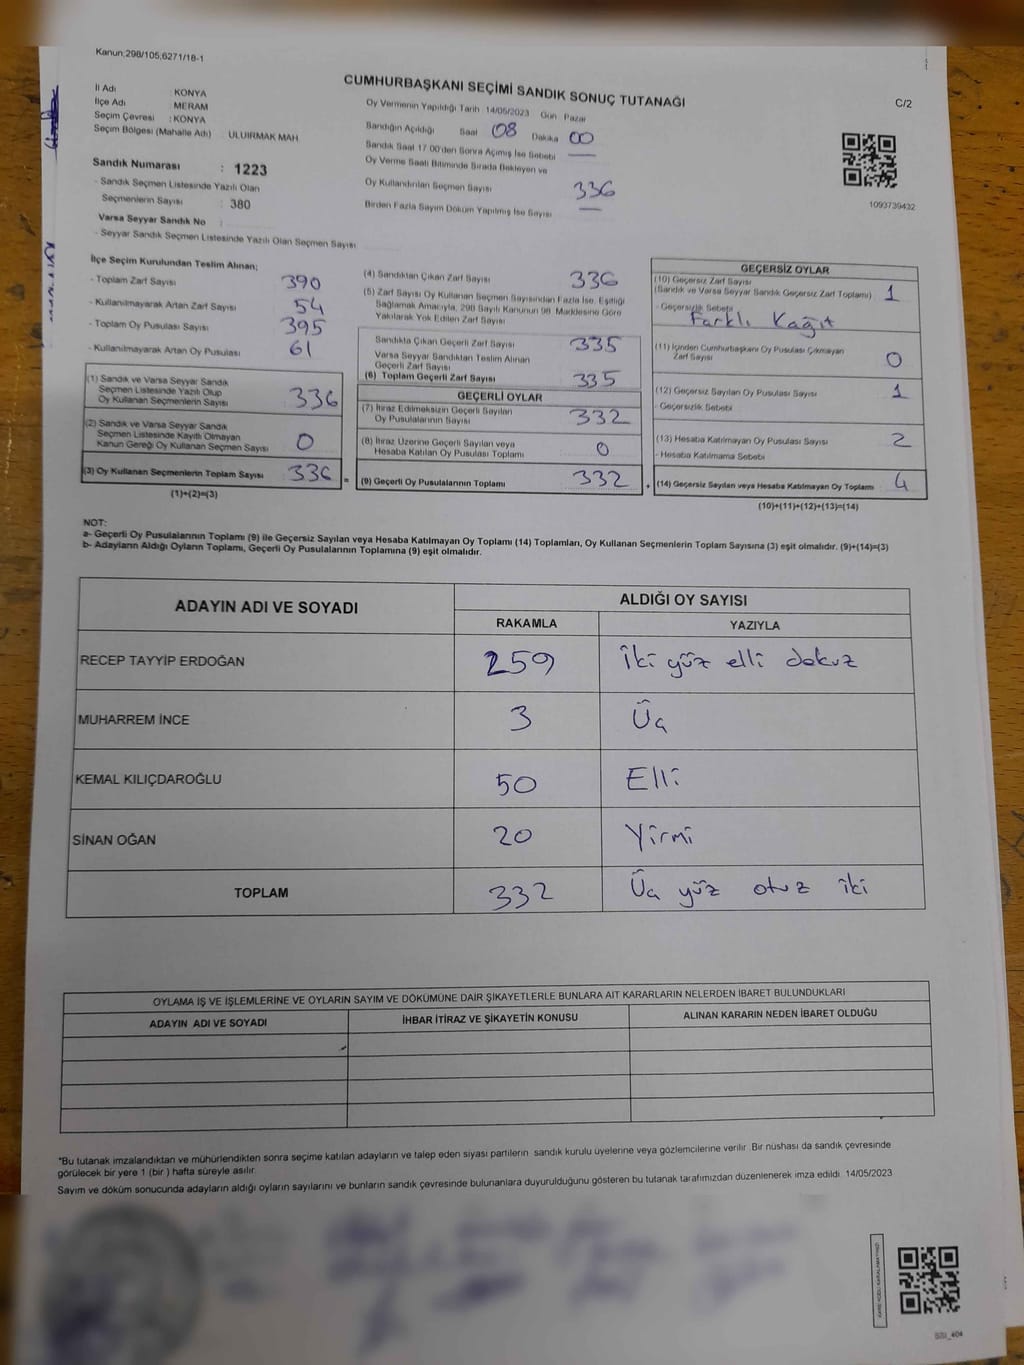 Kanun:298/105;6271/18-1
CUMHURBAŞKANI SEÇİMİ SANDIK SONUÇ TUTANAĞI
C/2
İl Adı : KONYA
İlçe Adı : MERAM
Seçim Çevresi : KONYA
Seçim Bölgesi (Mahalle Adı) : ULUIRMAK MAH
Sandık Numarası : 1223
- Sandık Seçmen Listesinde Yazılı Olan
Seçmenlerin Sayısı : 380
Varsa Seyyar Sandık No :
- Seyyar Sandık Seçmen Listesinde Yazılı Olan Seçmen Sayısı
Oy Vermenin Yapıldığı Tarih 14/05/2023 Gün Pazar
Sandığın Açıldığı Saat 08 Dakika 00
Sandık Saat 17.00'den Sonra Açılmış İse Sebebi —
Oy Verme Saati Bitiminde Sırada Bekleyen ve
Oy Kullandırılan Seçmen Sayısı 336
Birden Fazla Sayım Döküm Yapılmış İse Sayısı —
1093739432
İlçe Seçim Kurulundan Teslim Alınan;
- Toplam Zarf Sayısı 390
- Kullanılmayarak Artan Zarf Sayısı 54
- Toplam Oy Pusulası Sayısı 395
- Kullanılmayarak Artan Oy Pusulası 61
(1) Sandık ve Varsa Seyyar Sandık
Seçmen Listesinde Yazılı Olup
Oy Kullanan Seçmenlerin Sayısı 336
(2) Sandık ve Varsa Seyyar Sandık
Seçmen Listesinde Kayıtlı Olmayan
Kanun Gereği Oy Kullanan Seçmen Sayısı 0
(3) Oy Kullanan Seçmenlerin Toplam Sayısı 336 =
(1)+(2)=(3)
(4) Sandıktan Çıkan Zarf Sayısı 336
(5) Zarf Sayısı Oy Kullanan Seçmen Sayısından Fazla İse, Eşitliği
Sağlamak Amacıyla, 298 Sayılı Kanunun 98. Maddesine Göre
Yakılarak Yok Edilen Zarf Sayısı
Sandıkta Çıkan Geçerli Zarf Sayısı 335
Varsa Seyyar Sandıktan Teslim Alınan
Geçerli Zarf Sayısı
(6) Toplam Geçerli Zarf Sayısı 335
GEÇERLİ OYLAR
(7) İtiraz Edilmeksizin Geçerli Sayılan
Oy Pusulalarının Sayısı 332
(8) İtiraz Üzerine Geçerli Sayılan veya
Hesaba Katılan Oy Pusulası Toplamı 0
(9) Geçerli Oy Pusulalarının Toplamı 332 +
GEÇERSİZ OYLAR
(10) Geçersiz Zarf Sayısı
(Sandık ve Varsa Seyyar Sandık Geçersiz Zarf Toplamı) 1
- Geçersizlik Sebebi
Farklı Kağıt
(11) İçinden Cumhurbaşkanı Oy Pusulası Çıkmayan
Zarf Sayısı 0
(12) Geçersiz Sayılan Oy Pusulası Sayısı 1
- Geçersizlik Sebebi
(13) Hesaba Katılmayan Oy Pusulası Sayısı 2
- Hesaba Katılmama Sebebi
(14) Geçersiz Sayılan veya Hesaba Katılmayan Oy Toplamı 4
(10)+(11)+(12)+(13)=(14)
NOT:
a- Geçerli Oy Pusulalarının Toplamı (9) ile Geçersiz Sayılan veya Hesaba Katılmayan Oy Toplamı (14) Toplamları, Oy Kullanan Seçmenlerin Toplam Sayısına (3) eşit olmalıdır. (9)+(14)=(3)
b- Adayların Aldığı Oyların Toplamı, Geçerli Oy Pusulalarının Toplamına (9) eşit olmalıdır.
ADAYIN ADI VE SOYADI ALDIĞI OY SAYISI
RAKAMLA YAZIYLA
RECEP TAYYİP ERDOĞAN 259 İki yüz elli dokuz
MUHARREM İNCE 3 Üç
KEMAL KILIÇDAROĞLU 50 Elli
SİNAN OĞAN 20 Yirmi
TOPLAM 332 Üç yüz otuz iki
OYLAMA İŞ VE İŞLEMLERİNE VE OYLARIN SAYIM VE DÖKÜMÜNE DAİR ŞİKAYETLERLE BUNLARA AİT KARARLARIN NELERDEN İBARET BULUNDUKLARI
ADAYIN ADI VE SOYADI İHBAR İTİRAZ VE ŞİKAYETİN KONUSU ALINAN KARARIN NEDEN İBARET OLDUĞU
*Bu tutanak imzalandıktan ve mühürlendikten sonra seçime katılan adayların ve talep eden siyasi partilerin sandık kurulu üyelerine veya gözlemcilerine verilir. Bir nüshası da sandık çevresinde
görülecek bir yere 1 (bir ) hafta süreyle asılır.
Sayım ve döküm sonucunda adayların aldığı oyların sayılarını ve bunların sandık çevresinde bulunanlara duyurulduğunu gösteren bu tutanak tarafımızdan düzenlenerek imza edildi. 14/05/2023